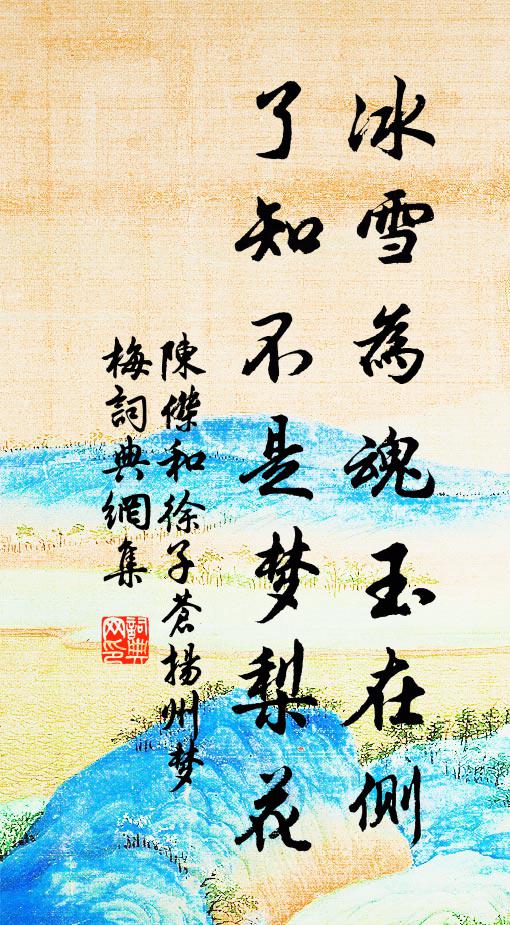 冰雪為魂玉在側
了知不是梦梨花
陳傑和徐子蒼揚州梦
梅詞典網集
詞典
网印